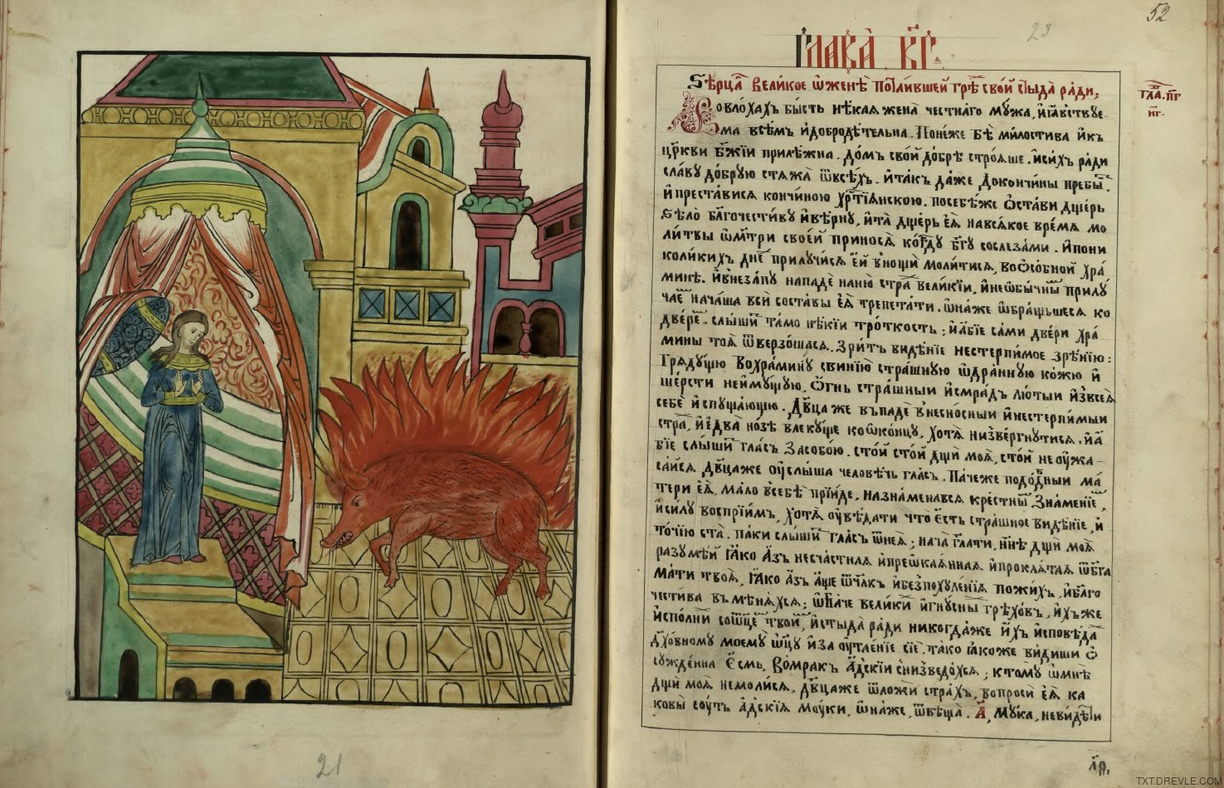 21
52
23
Глава̀ к҃г.
Ѕѣрца̀ великое ѡженѣ потаившей грѣ свой стыда ради,
Во влохахъ бысть нѣкая жена честнаго мужа, и҆ꙗ҆вствуе-
ма всѣмъ идобродѣтельна. Понеже бѣ милостива икъ
цр҃кви бж҃їи прилѣжна. домъ свой добрѣ строѧше. исихъ ради
славу добрую стѧжа ѿвсѣхъ. итакъ даже докончины пребы.
и҆преставися кончиною хрⷭ҇тїѧнскою. посебѣже ѡстави дщерь
ѕѣло бл҃гочестиву ивѣрну, ита дщерь еѧ навсѧкое времѧ мо
литвы ѡмт҃ри своей приносѧ когⷣу бг҃у сослезами. ипони
коликихъ дне прилучисѧ ей внощи молитисѧ, воѡсобной хра
минѣ. ивнезапу нападе наню стра великїи, инеѡбычны прилу
чае начаша вси составы еѧ трепетати. ѡнаже ѡбращьшесѧ ко
двере, слыши тамо нѣкїи тро́ткость; иабїе сами двери хра
мины тоѧ ѿверзошасѧ. зритъ видѣнїе нестерпимое зрѣнїю:
грѧдущю вохрамину свинїю страшную ѡдранную кожю и
шерсти неимущую. ѡгнь страшный исмрадъ лютый изъвсеѧ
себе испущающю. дв҃цаже въпаде внесносный инестерпимый
стра, иедва нозѣ влекуще коѡконцу, хотѧ низвергнутисѧ. иа
бїе слыши гласъ засобою. стой стой дщи моѧ, стой неоужа-
сайсѧ дв҃цаже оуслыша человѣчь гласъ. Пачеже подобны ма
тери еѧ, мало всебѣ прїиде.назнаменавсѧ крестны знаменїе,
исилу воспрїим, хотѧ оувѣдати что есть страшное видѣнїе, и
точїю ста. паки слыши гласъ ѿнеѧ; нача гл҃ати, нн҃ѣ дщи моѧ
разумѣй ꙗко азъ несчастнаѧ ипреѡкаѧннаѧ ипроклѧтаѧ ѿбг҃а
мати твоѧ, ꙗко азъ аще ѿчл҃къ ибезпохуленїѧ пожихъ, ибл҃го
честива вмѣнѧхсѧ; ѡбаче велики игнусны грѣховъ, ихъже
исполни соѿце твой, истыда ради никогдаже ихъ исповѣда
дх҃овному моему ѿцу иза оутленїе сїе, тако ꙗкоже видиши ѡ
суждена есмь, вомракъ адскїи снизведохсѧ; ктому ѡмнѣ
дщи моѧ немолисѧ. дв҃цаже ѿложи страхъ, вопроси еѧ ка
ковы соуть адскїѧ моуки, ѡнаже, ѿвѣща. а҃, мука, невидѣти
TXT.DREVLE.COM